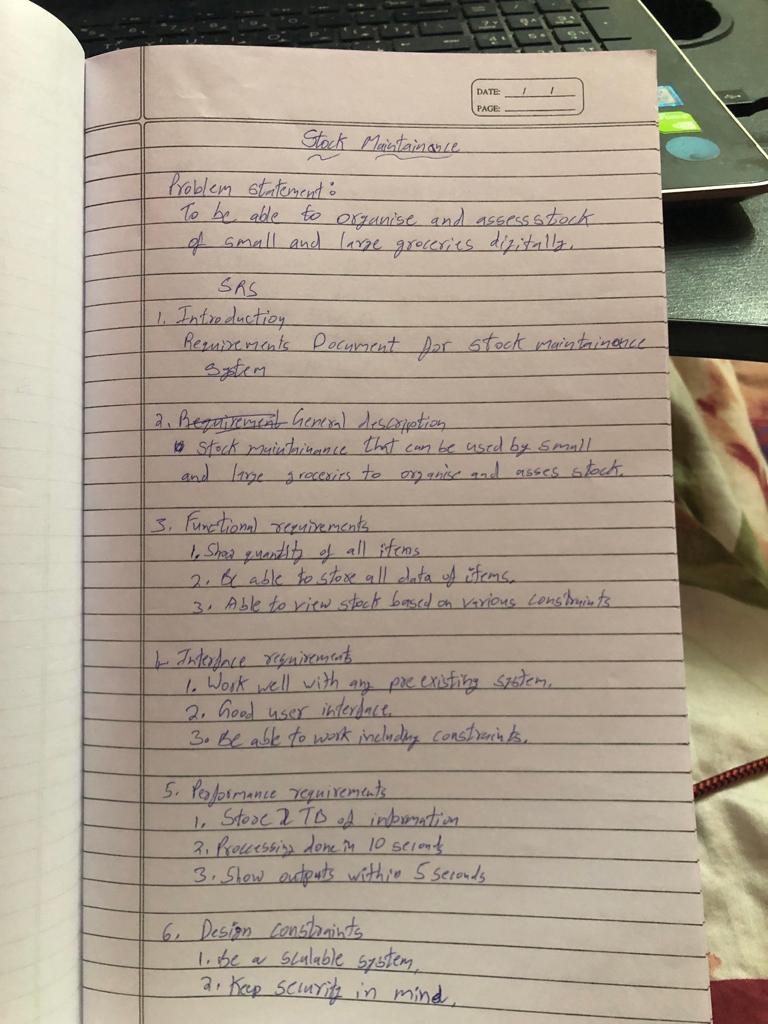 DATE: / /
PAGE:
Stock Maintainance
Problem statement:
To be able to organise and assess stock
of small and large groceries digitally.
SRS
1. Introduction
Requirements Document for stock maintainence
system
2. Requirement General description
Stock maintainance that can be used by small
and large groceries to organise and asses stock.
3. Functional requirements
1. Show quantity of all items
2. Be able to store all data of items.
3. Able to view stock based on various constraints
4. Interface requirements
1. Work well with any pre existing system.
2. Good user interface.
3. Be able to work including constraints.
5. Performance requirements
1. Store 2 TB of information
2. Proccessing done in 10 seconds
3. Show outputs within 5 seconds
6. Design constraints
1. Be a scalable system,
2. Keep security in mind.